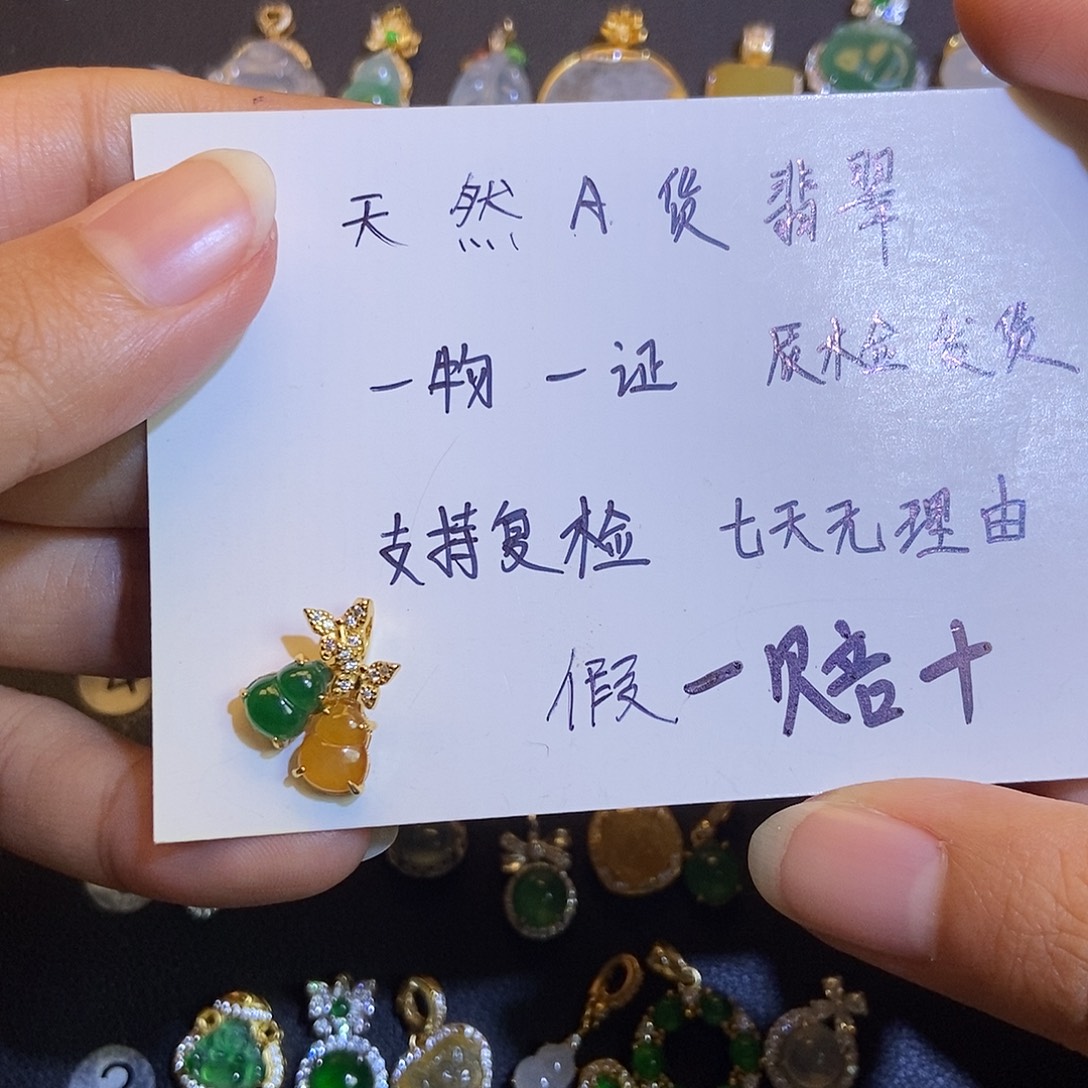 天然A货翡翠
一物一证 辰水金发货
支持复检 七天无理由
假一赔十
2